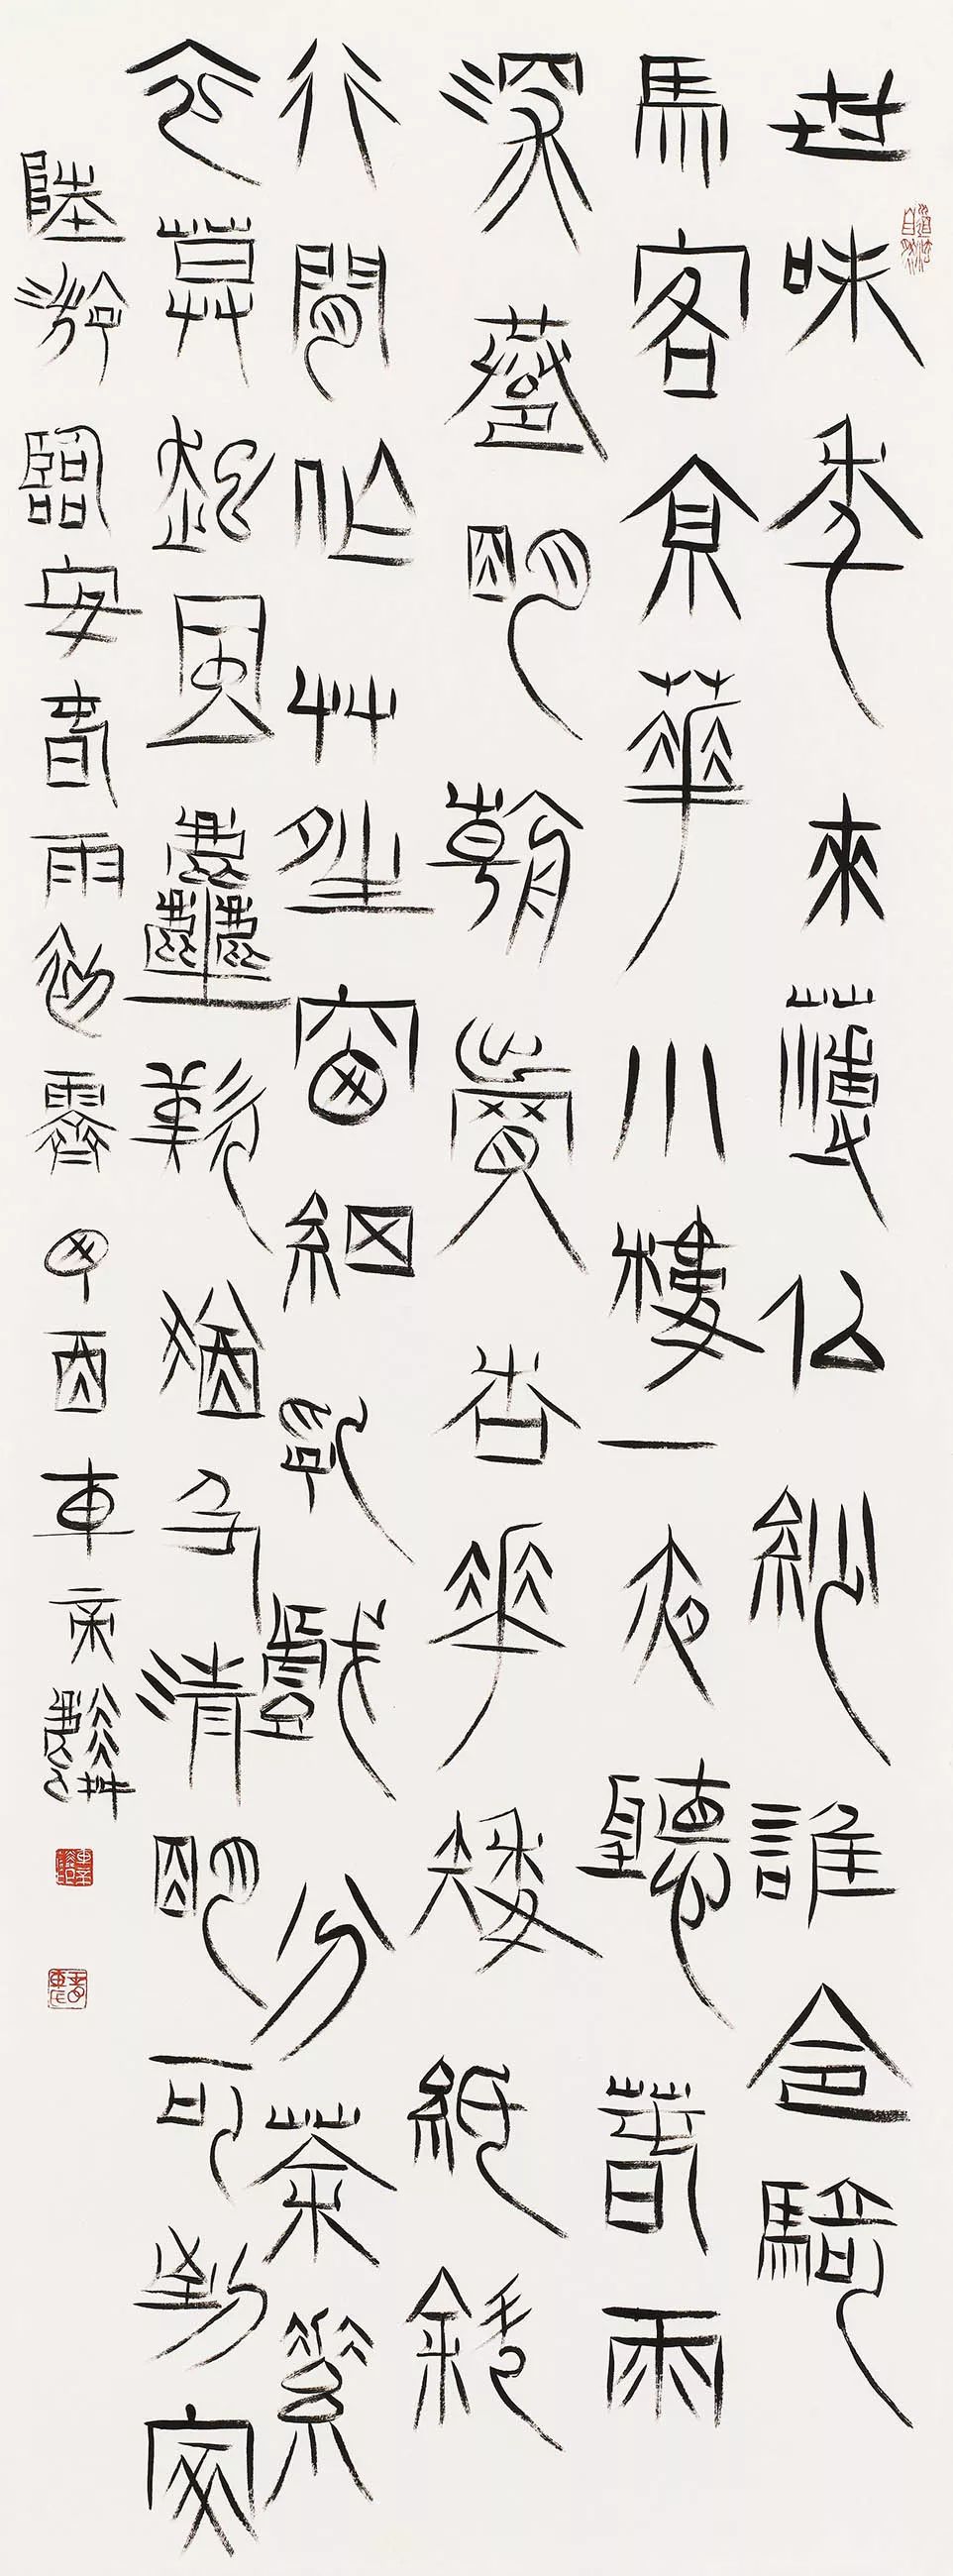 世味年來薄佀紗誰令騎
馬客京華小樓一夜聽春雨
深巷明朝賣杏華矮紙斜
行閒作艸晴窗細乳戲分茶素
衣莫起風塵歎猶及清明可到家
陸游臨安春雨初霽 酉車帝